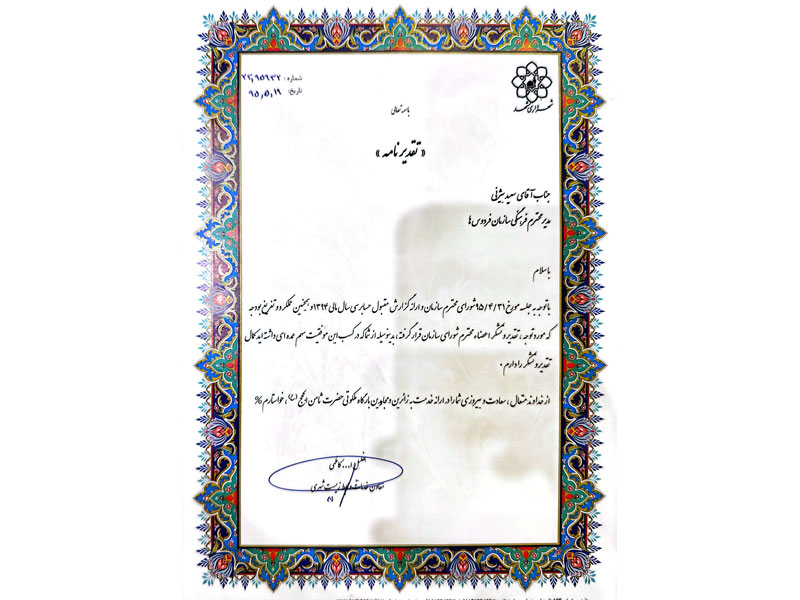 شهرداری مشهد
شماره: ۲۲,۹۵۹۳۲
تاریخ: ۹۵,۵,۱۹
باسمه تعالی
« تقدیرنامه »
جناب آقای سعید بیژنی
مدیر محترم فرهنگی سازمان فردوس ها
با سلام
با توجه به جلسه مورخ ۹۵/۴/۳۱ شورای محترم سازمان و ارائه گزارش مقبول حسابرسی سال مالی ۱۳۹۴ و همچنین عملکرد و تفریغ بودجه
که مورد توجه ، تقدیر و تشکر اعضاء محترم شورای سازمان قرار گرفته ، بدینوسیله از شما که در کسب این موفقیت سهم عمده ای داشته اید کمال
تقدیر و تشکر را دارم .
از خداوند متعال ، سعادت و پیروزی شما را در ارائه خدمت به زائرین و مجاورین بارگاه ملکوتی حضرت ثامن الحجج (ع) ، خواستارم
خلیل ا... کاظمی
معاون خدمات و محیط زیست شهری